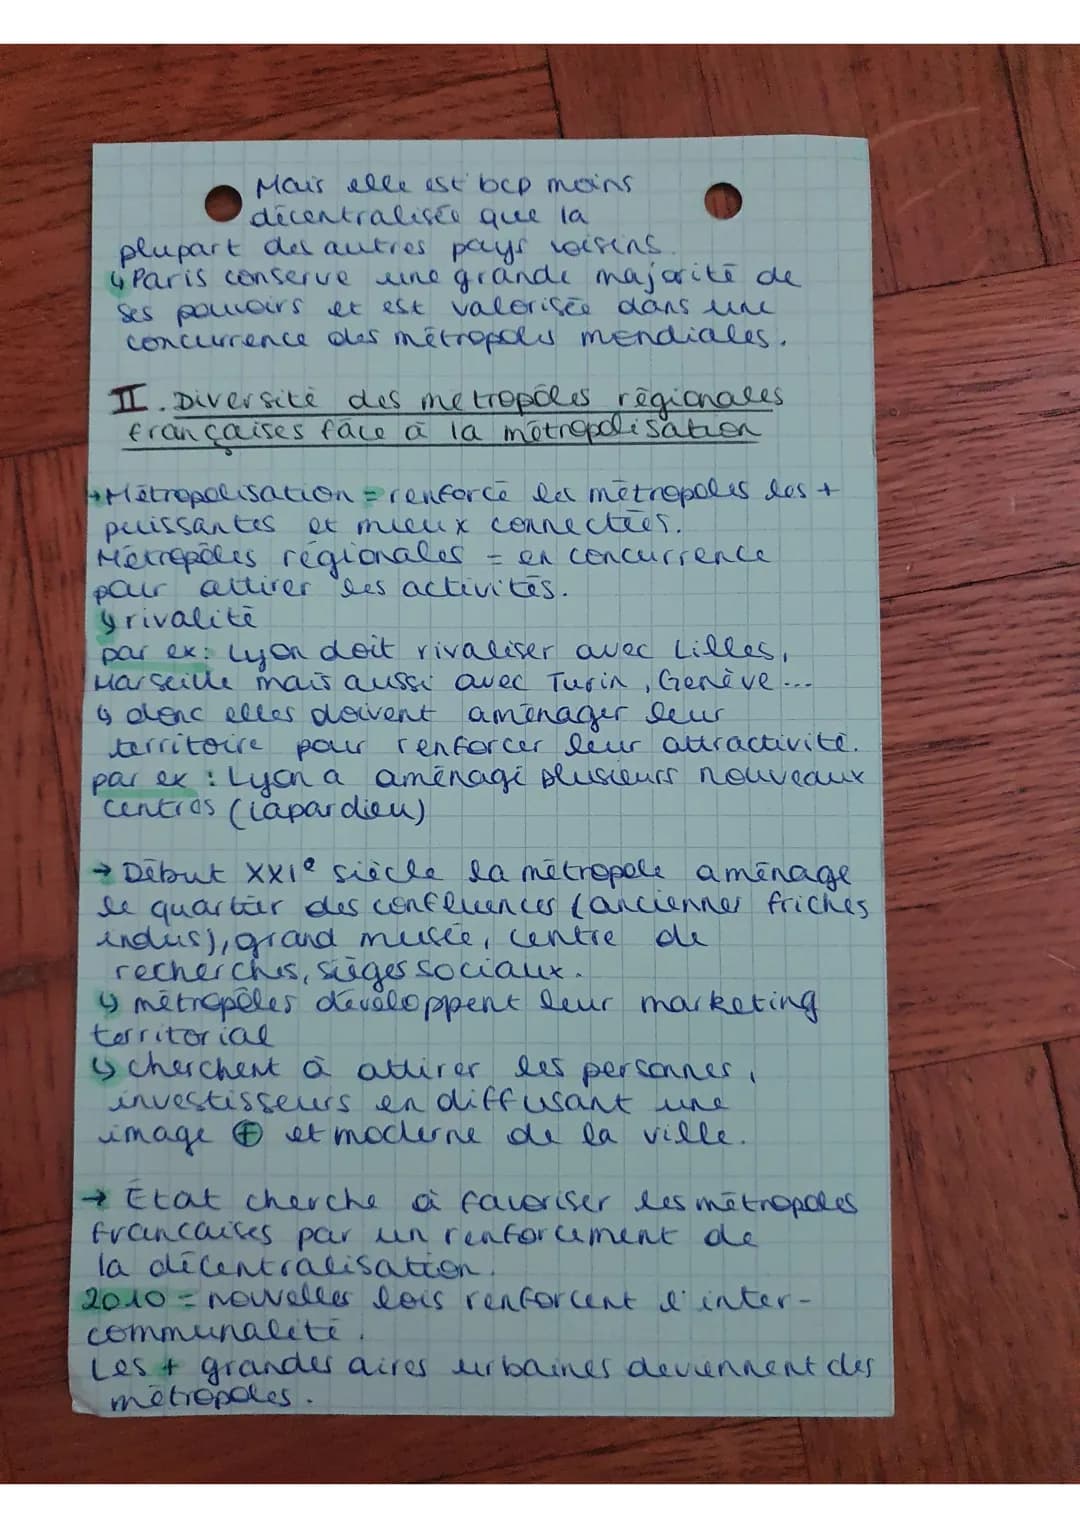 Mais elle est bcp moins
décentralisée que la
plupart des autres pays voisins.
↳ Paris conserve une grande majorité de
ses pouvoirs et est valorisée dans une
concurrence des métropoles mondiales.
II. Diversité des métropôles régionales
françaises face à la métropolisation
→ Métropolisation = renforce les métropoles les +
puissantes et mieux connectées.
Métropôles régionales = en concurrence
pour attirer les activités.
↳ rivalité
par ex: Lyon doit rivaliser avec Lilles,
Marseille mais aussi avec Turin, Genève...
↳ donc elles doivent aménager leur
territoire pour renforcer leur attractivité.
par ex : Lyon a aménagé plusieurs nouveaux
centres (lapardieu)
→ Début XXIe siècle la métropole aménage
le quartier des confluences (anciennes friches
indus), grand musée, centre de
recherches, sièges sociaux.
↳ métropôles développent leur marketing
territorial
↳ cherchent à attirer les personnes,
investisseurs en diffusant une
image ⊕ et moderne de la ville.
→ État cherche à favoriser les métropoles
francaises par un renforcement de
la décentralisation.
2010 = nouvelles lois renforcent l'inter-
communalité.
Les + grandes aires urbaines deviennent des
métropoles.